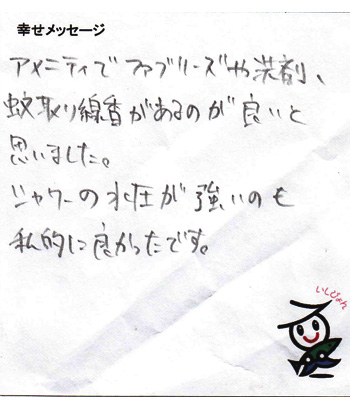 幸せメッセージ
アメニティでファブリーズや洗剤、
蚊取り線香があるのが良いと
思いました。
シャワーの水圧が強いのも
私的に良かったです。
いしぴょん